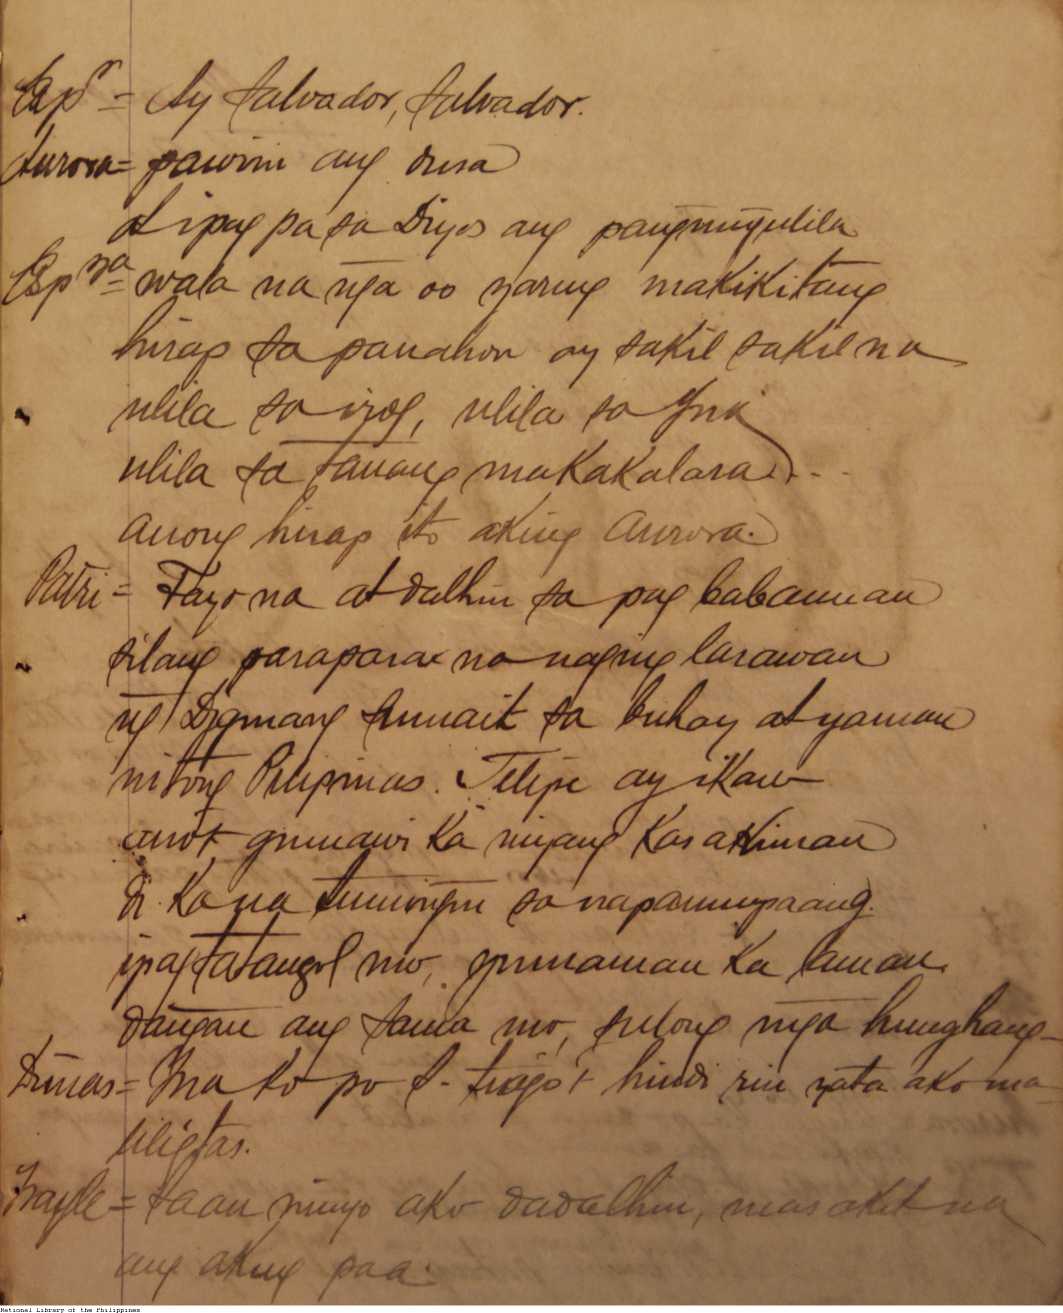 Espr = Ay Salvador, Salvador.
Aurora = pawiin ang dusa
at ipag pa sa Diyos ang pangungulila
Espna = wala na nga oo yaring makikitang
hirap sa panahon ay sakil sakil na
ulila sa irog, ulila sa Yna
ulila sa tanang makakalara...
anong hirap ito aking Aurora.
Patri = Tayo na at dalhin sa pag babaunan
silang parapara na naging larawan
ng Digmang sumait sa buhay at yaman
nitong Pilipinas. Felipe ay ikaw
anot gumawi ka niyang Kasakiman
di ka na tumingin sa napanumpaang
ipagtatangol mo, gumaman ka laman
dangan ang sama mo, sulong mga hunghang
Dimas = Yna ko po S. tiago't hindi rin yata ako ma-
liligtas.
Frayle = saan ninyo ako dadalhin, masakit na
ang aking paa.
National Library of the Philippines